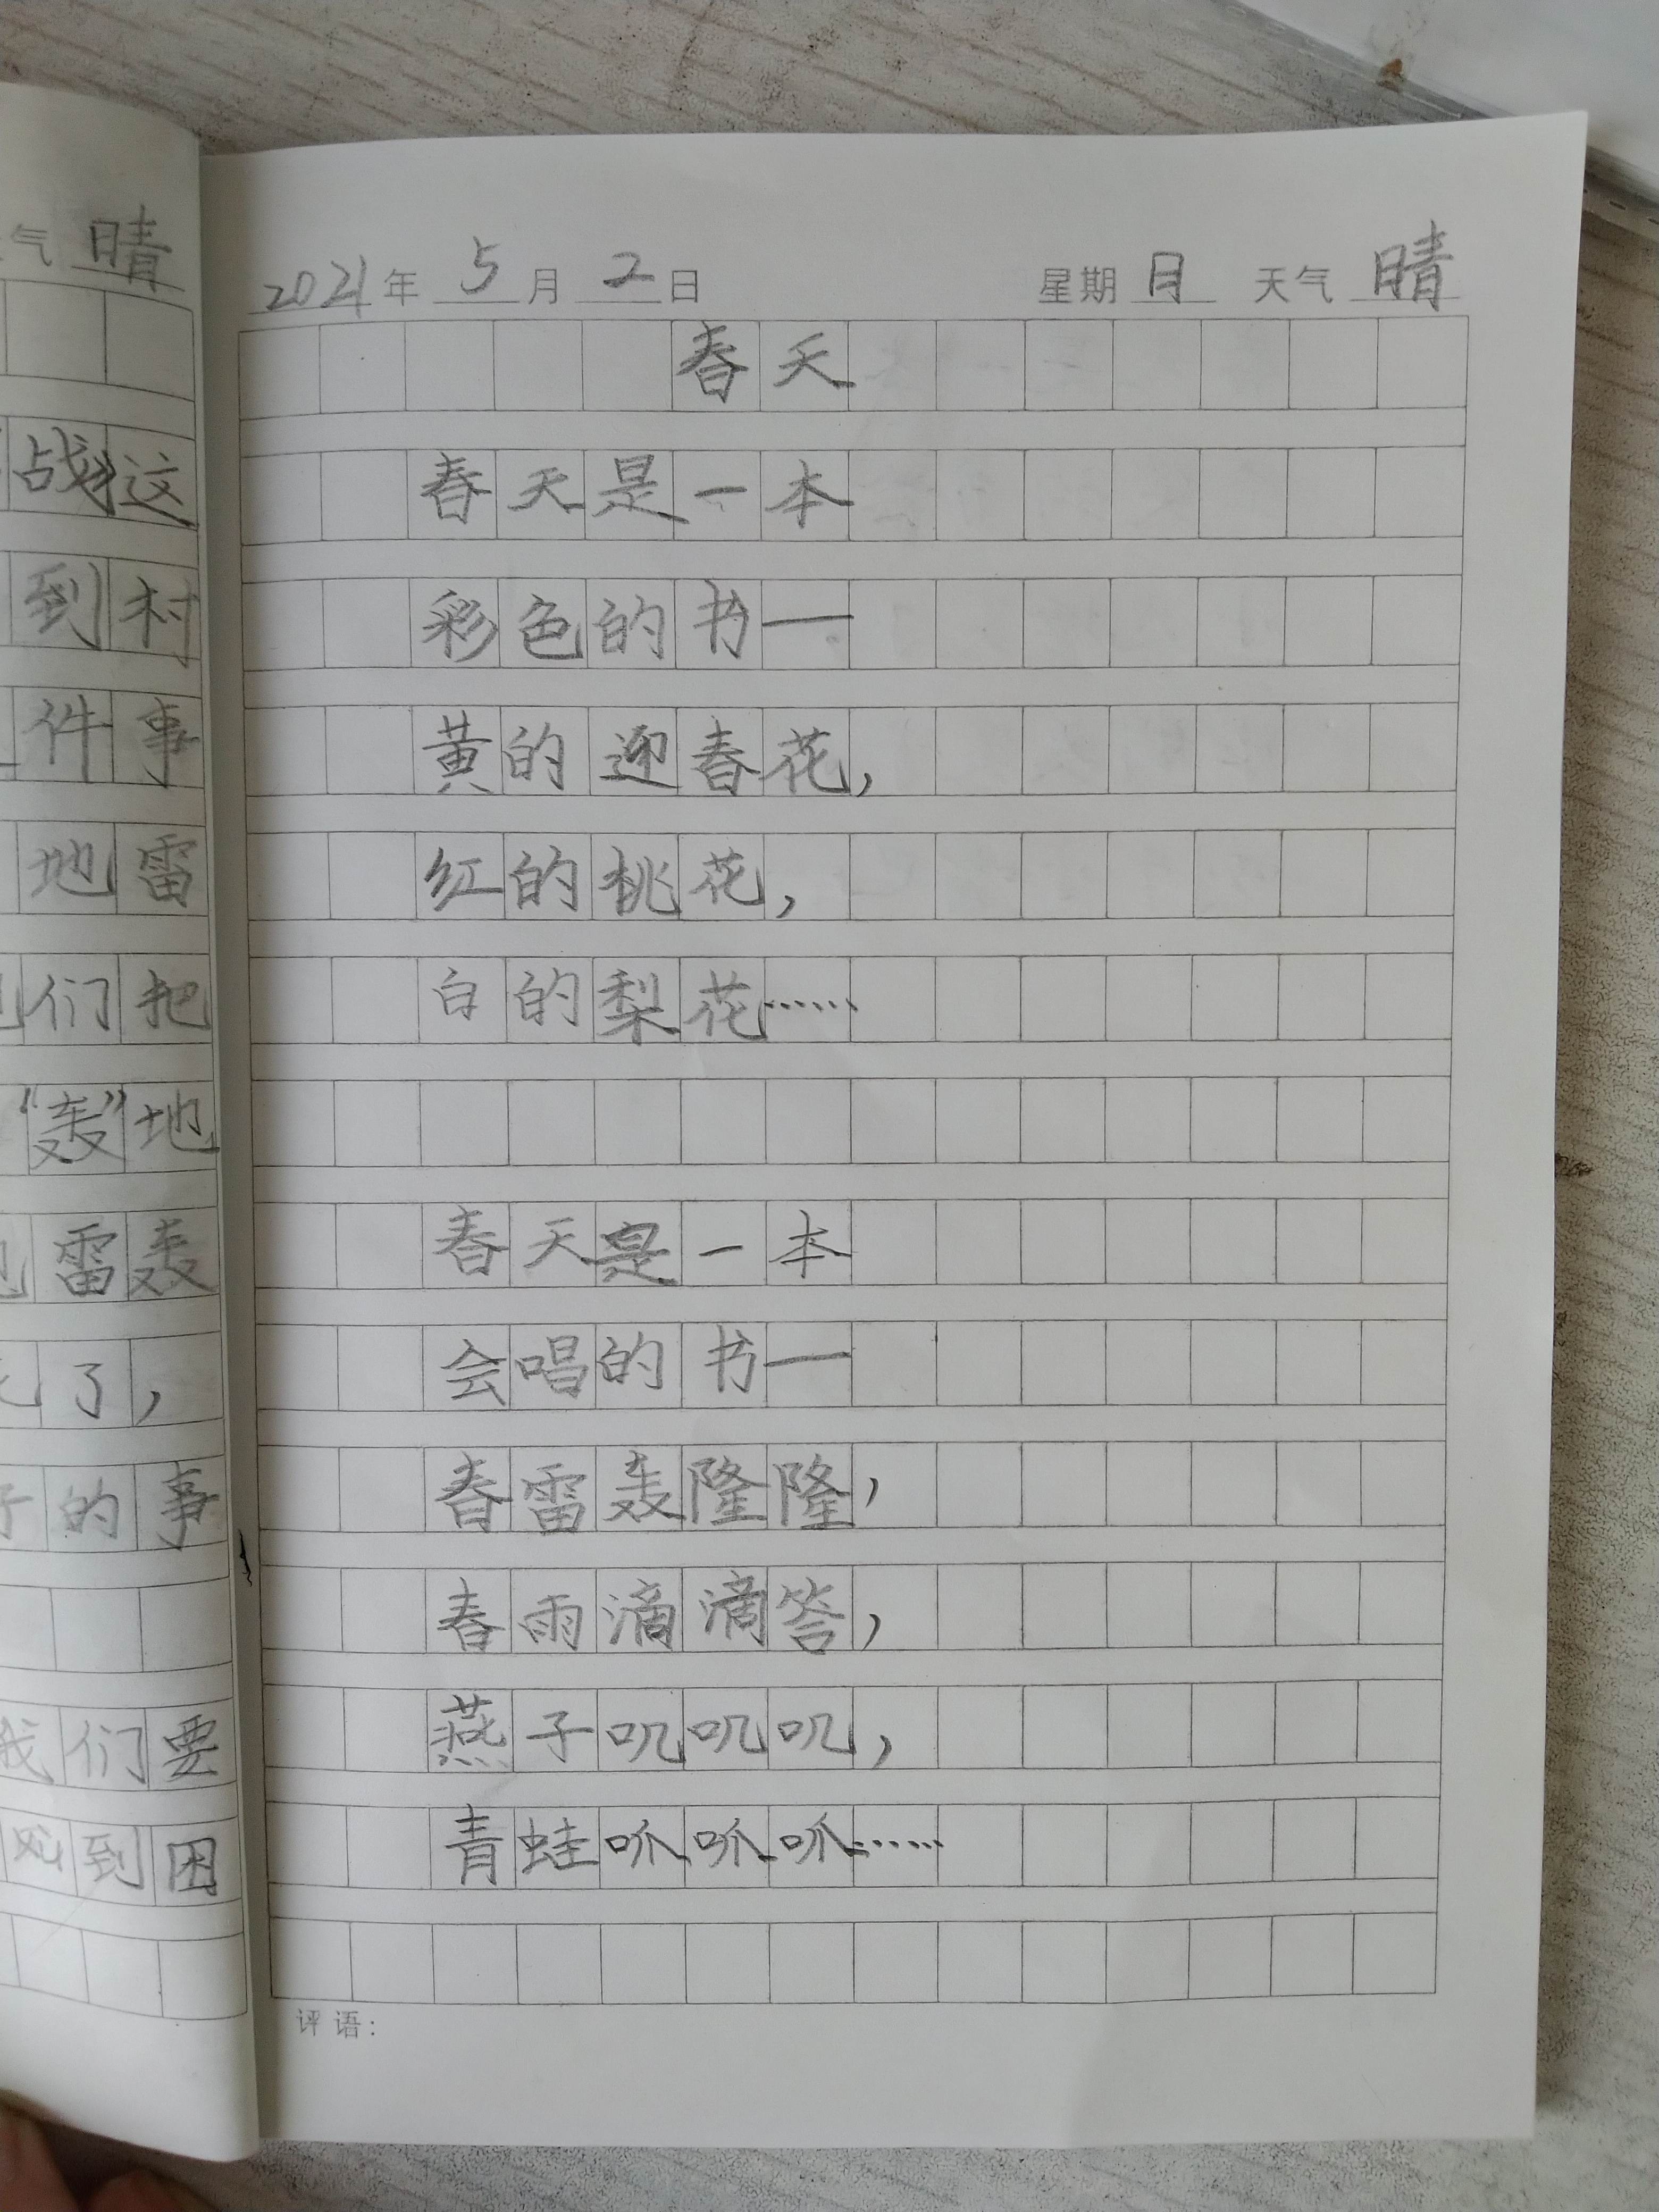 气 晴
战》这
到村
件事
地雷
们把
“轰”地
雷轰
了，
的事
我们要
到困
2021年 5月 2日 星期 日 天气 晴
春天
春天是一本
彩色的书—
黄的迎春花，
红的桃花，
白的梨花……
春天是一本
会唱的书—
春雷轰隆隆，
春雨滴滴答，
燕子叽叽叽，
青蛙呱呱呱……
评语：